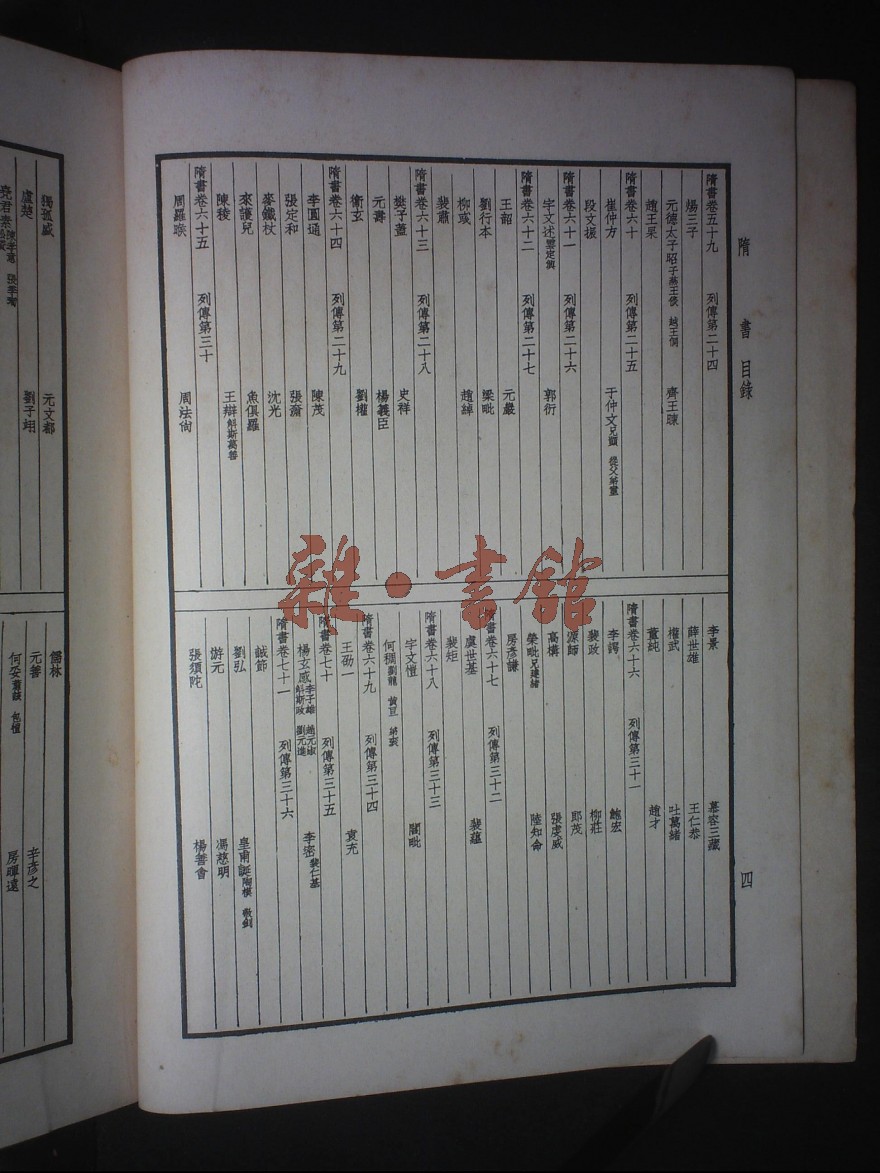 隋書 目錄 四
隋書卷五十九 列傳第二十四
煬三子
元德太子昭子燕王倓 越王侗 齊王暕
趙王杲
隋書卷六十 列傳第二十五
崔仲方 于仲文兄顗 從父弟璽
段文振
隋書卷六十一 列傳第二十六
宇文述雲定興 郭衍
隋書卷六十二 列傳第二十七
王韶 元巖
劉行本 梁毗
柳彧 趙綽
裴肅
隋書卷六十三 列傳第二十八
樊子蓋 史祥
元壽 楊義臣
衛玄 劉權
隋書卷六十四 列傳第二十九
李圓通 陳茂
張定和 張奫
麥鐵杖 沈光
來護兒 魚俱羅
陳稜 王辯斛斯萬善
隋書卷六十五 列傳第三十
周羅睺 周法尚
李景 慕容三藏
薛世雄 王仁恭
權武 吐萬緒
董純 趙才
隋書卷六十六 列傳第三十一
李諤 鮑宏
裴政 柳莊
源師 郎茂
高構 張虔威
榮毗兄建緒 陸知命
房彥謙
隋書卷六十七 列傳第三十二
虞世基 裴蘊
裴矩
隋書卷六十八 列傳第三十三
宇文愷 閻毗
何稠劉龍 黃亘 弟袞
隋書卷六十九 列傳第三十四
王劭一 袁充
隋書卷七十 列傳第三十五
楊玄感李子雄 趙元淑 斛斯政 劉元進 李密裴仁基
隋書卷七十一 列傳第三十六
誠節
劉弘 皇甫誕陶模 敬釗
游元 馮慈明
張須陀 楊善會
獨孤盛 元文都
盧楚 劉子翊
堯君素陳孝意 張季珣
儒林
元善 辛彥之
何妥蕭該 包愷 房暉遠
雜·書館